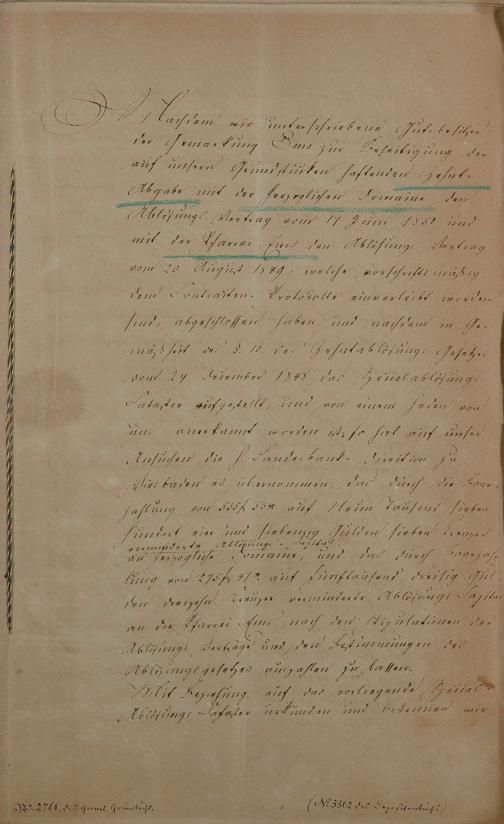 Nachdem wir unterschriebene Gutsbesitzer
der Gemarkung Ems zur Beseitigung der
auf unsern Grundstücken haftenden Zehnt-
Abgabe mit der herzoglichen Domaine den
Ablösungs Vertrag vom 17 Juni 1850 und
mit der Pfarrei Ems den Ablösungs Vertrag
vom 20 August 1849, welche vorschriftsmäßig
dem Contracten-Protokolle einverleibt worden
sind, abgeschlossen haben, und nachdem in Ge-
mäßheit des §. 10. des Zehntablösungs Gesetzes
vom 24 Dezember 1848 das Spezialablösungs
Cataster aufgestellt, und von einem jeden von
uns anerkannt worden ist, so hat auf unser
Ansuchen die H. Landesbank-Direktion zu
Wiesbaden es übernommen, das durch die Baar-
zahlung von 535 f. auf Neun Tausend sieben
hundert vier und siebenzig Gulden sieben Kreuzer
verminderte Ablösungs-Capital
an herzogliche Domaine, und das durch Baarzah-
lung von 275 f. 47 auf fünftausend dreißig Gul-
den dreizehn Kreuzer verminderte Ablösungs Capital
an die Pfarrei Ems nach den Stipulationen der
Ablösungs Verträge und den Bestimmungen des
Ablösungsgesetzes auszahlen zu lassen.
Mit Beziehung auf das vorliegende Spezial-
Ablösungs-Cataster urkunden und bekennen wir
No. 2761. des
(No. 3562 des Depositenbuchs.)